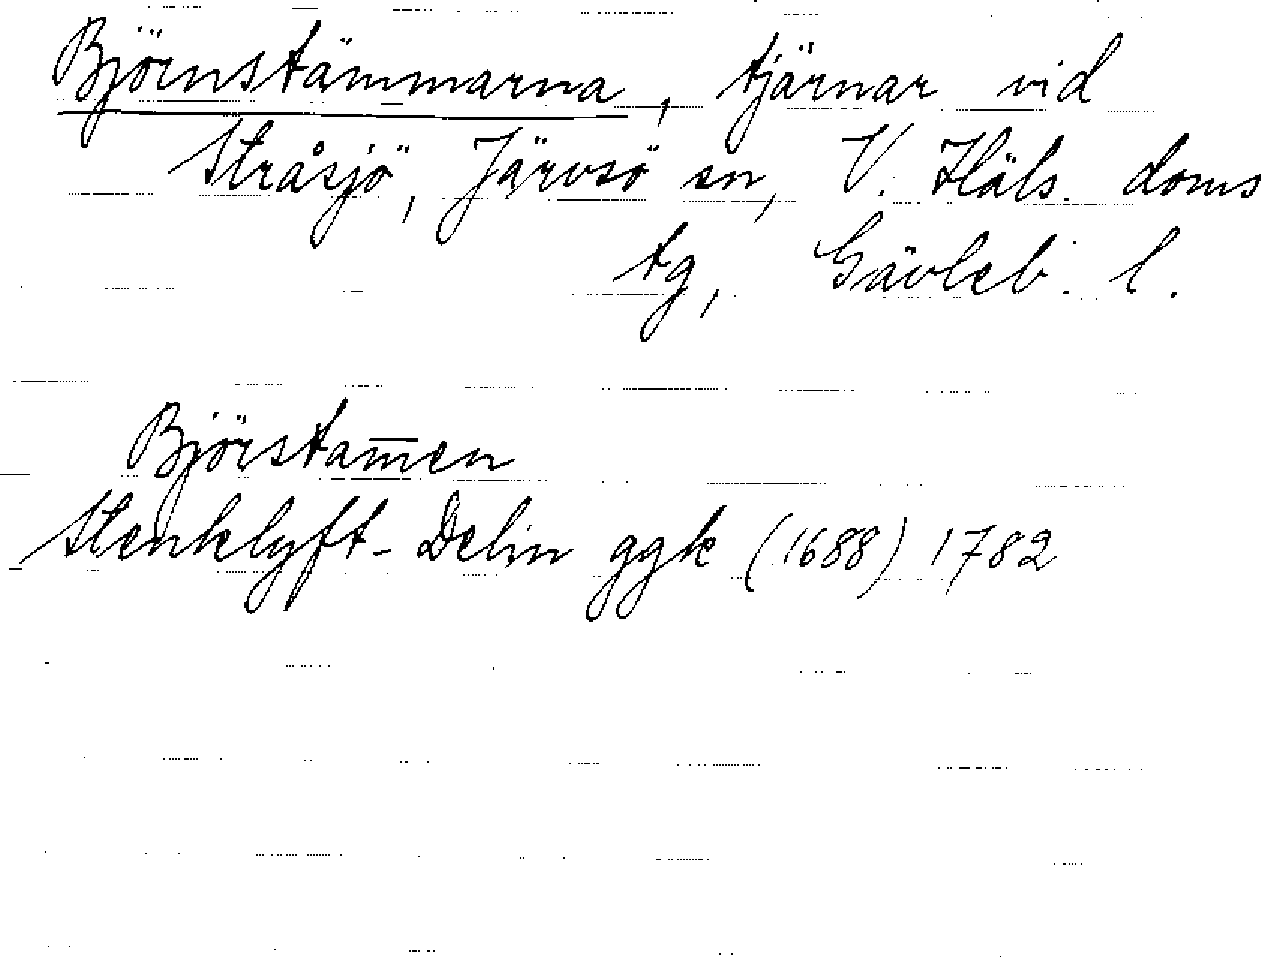 Björnstämmarna, tjärnar vid
Stråsjö, Järvsö sn, V. Häls. doms
tg, Gävleb. l.
Björstam̅en
Stenklyft-Delin ggk (1688) 1782